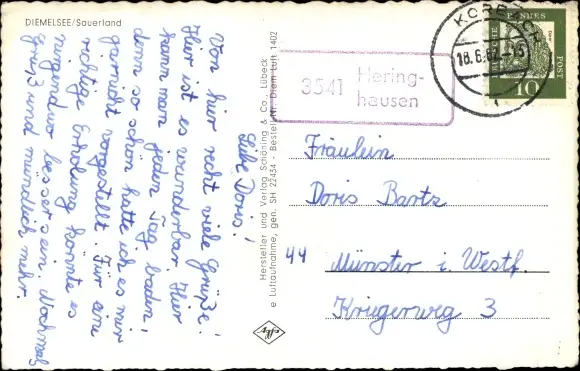 DIEMELSEE/Sauerland
Liebe Doris!
Von hier recht viele Grüße!
Hier ist es wunderbar. Hier
kann man jeden Tag baden!
denn so schön hatte ich es mir
garnicht vorgestellt. Für eine
richtige Erholung könnte es
nirgendwo besser sein. Nochmals
Gruß und mündlich mehr.
Hersteller und Verlag Schöning & Co., Lübeck
e Luftaufnahme, gen. SH 22454 - Bestell-Nr. Diem Luft 1402
Agfa
3541 Hering-
hausen
KORBACH
18.6.62
DEUTSCHE BUNDES POST
10
Fräulein
Doris Bartz
44 Münster i. Westf.
Krügerweg 3